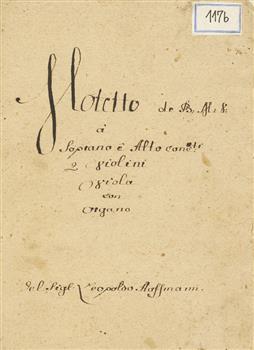 1176
Motetto de B. M. V.
á
Soprano é Alto conc:ti
2 Violini
Viola
con
Organo
Del Sigl: Leopoldo Hoffmann.